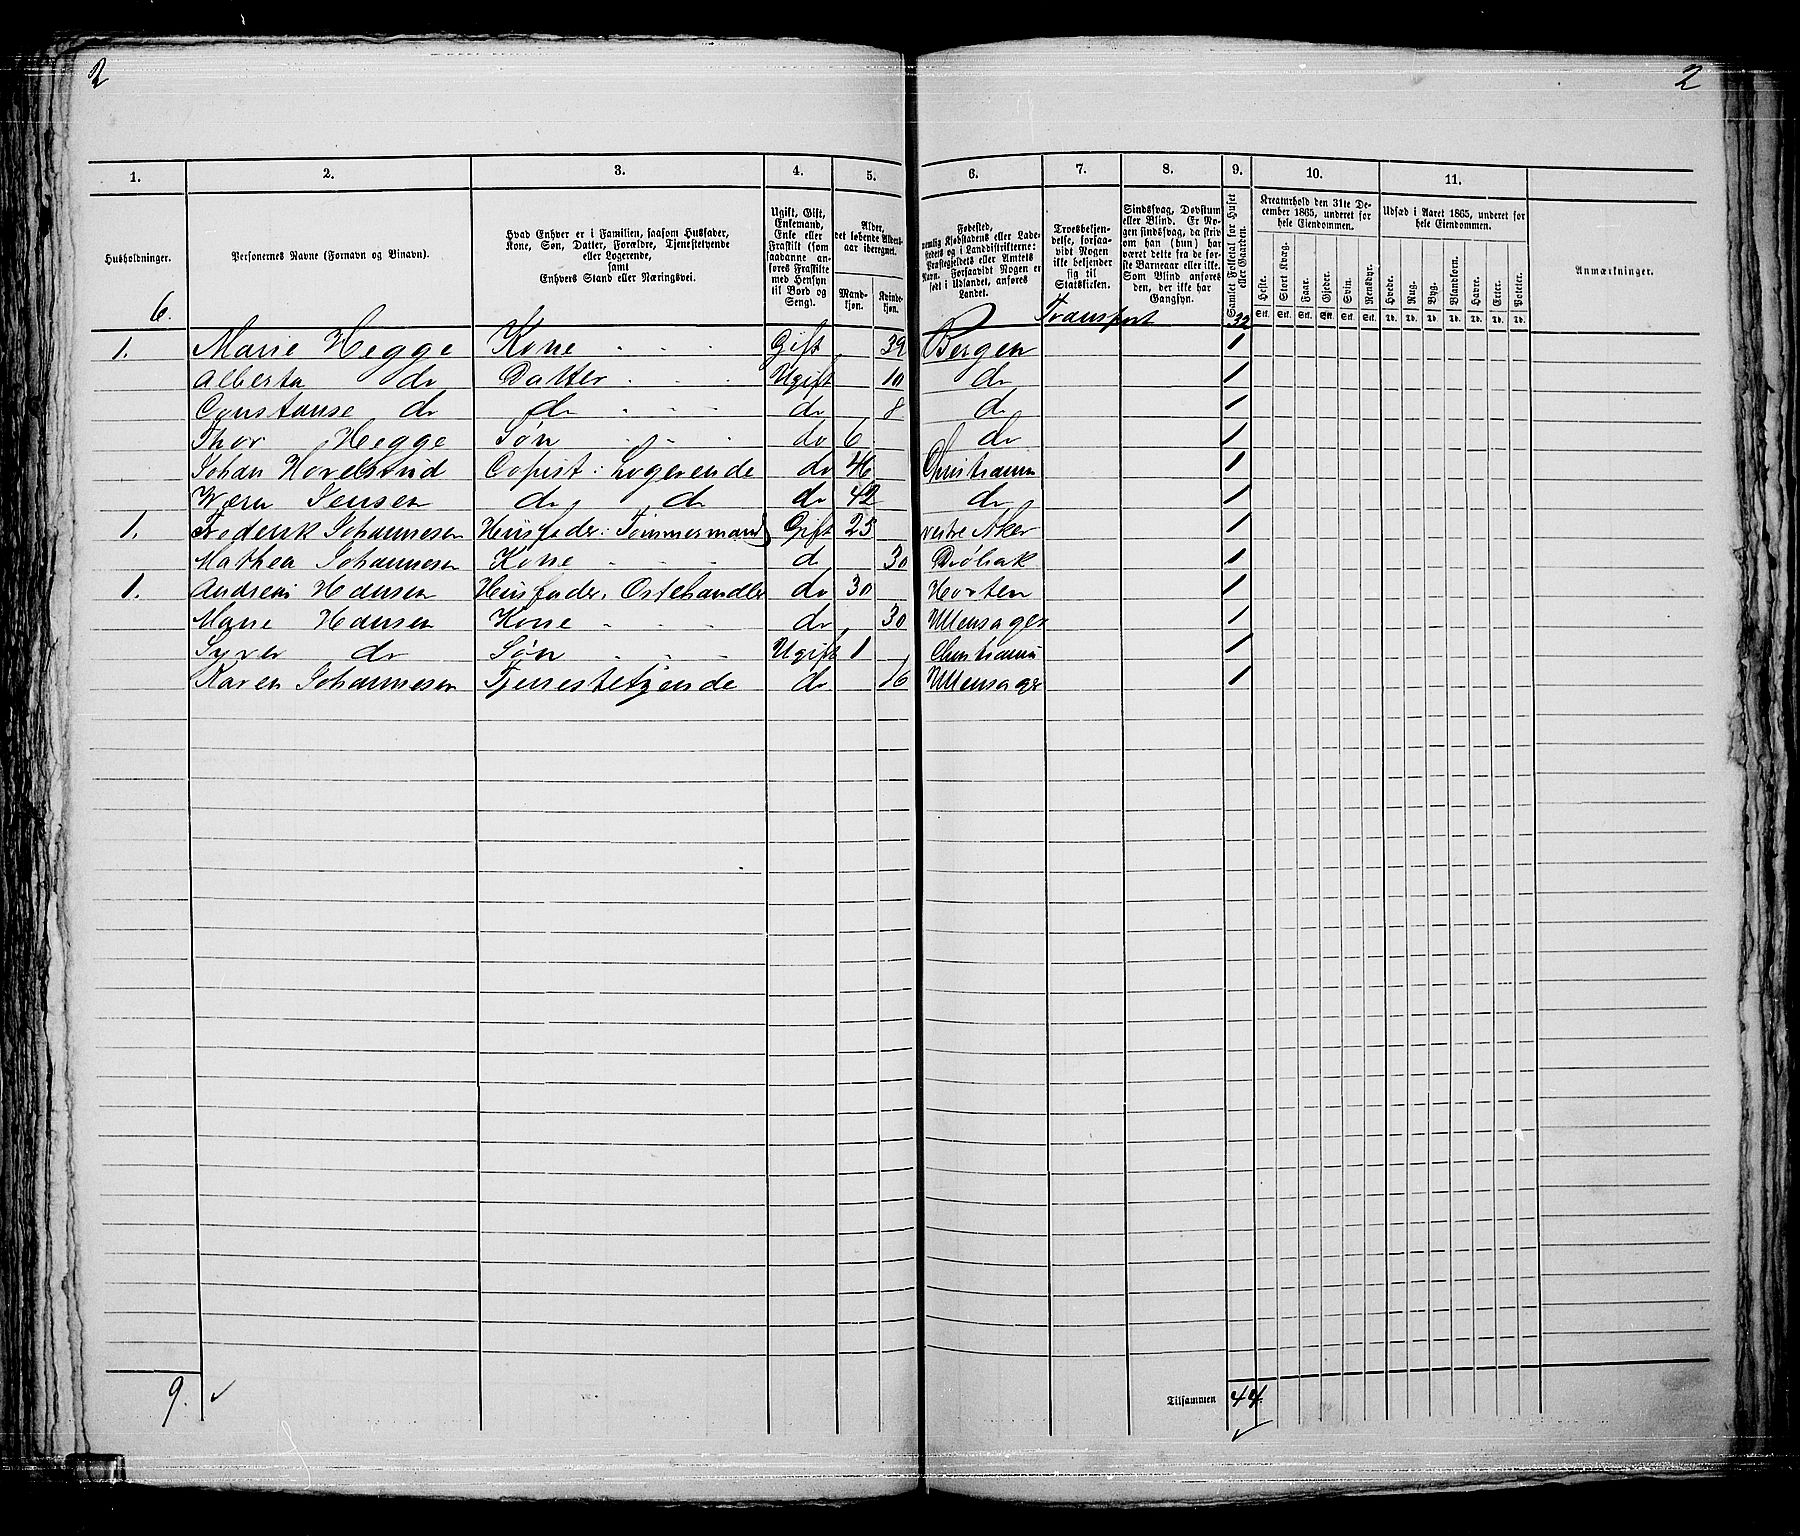 2 2
1. 2. 3. 4. 5. 6. 7. 8. 9. 10. 11.
Husholdninger.
Personernes Navne (Fornavn og Binavn).
Hvad Enhver er i Familien, saasom Husfader,
Kone, Søn, Datter, Forældre, Tjenestetyende
eller Logerende,
samt
Enhvers Stand eller Næringsvei.
Ugift, Gift,
Enkemand,
Enke eller
Fraskilt (som
saadanne an-
føres Fraskilte
med Hensyn
til Bord og
Seng).
Alder,
det løbende Alders-
aar iberegnet.
Mand-
kjøn.
Kvinde-
kjøn.
Fødested,
nemlig Kjøbstadens eller Lade-
stedets og i Landdistrikterne:
Præstegjeldets eller Amtets
Navn. Forsaavidt Nogen er
født i Udlandet, anføres
Landet.
Troesbekjen-
delse, forsaa-
vidt Nogen
ikke bekjender
sig til
Statskirken.
Sindssvag, Døvstum
eller Blind. Er No-
gen sindssvag, da skriv
om han (hun) har
været dette fra de før-
ste Barneaar eller ikke.
Som Blind anføres
den, der ikke har
Gangsyn.
Samlet Folketal for Huset
eller Gaarden.
Kreaturhold den 31te De-
cember 1865, underet for
hele Eiendommen.
Heste. Stort Kvæg. Faar. Gjeder. Svin. Rensdyr.
Stk. Stk. Stk. Stk. Stk. Stk.
Udsæd i Aaret 1865, underet for
hele Eiendommen.
Hvede. Rug. Byg. Blandkorn. Havre. Erter. Poteter.
Td. Td. Td. Td. Td. Td. Td.
Anmærkninger.
6. Transport 32
1. Marie Hegge Kone Gift 39 Bergen 1
Alberta do Datter Ugift 10 do 1
Constanse do do do 8 do 1
Thor Hegge Søn do 6 do 1
Johan Hovelsrud Copist: Logerende do 46 Christiania 1
Jensen do do do 42 do 1
1. Frederik Johannesen Huusfader: Tømmermand Gift 25 vestre Aker 1
Mathea Johannesen Kone do 30 Drøbak 1
1. Andreas Hansen Huusfader. Ostehandler do 30 Horten 1
Marie Hansen Kone do 30 Ullensager 1
Syver do Søn Ugift 1 Christiania 1
Karen Johannesen Tjenestetyende do 16 Ullensager 1
9. Tilsammen 44.